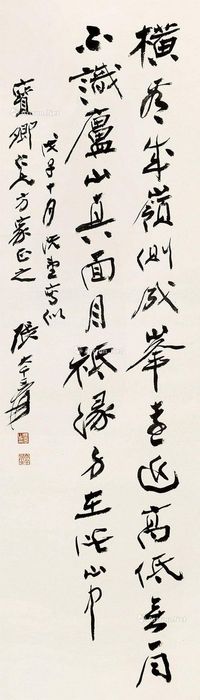 橫看成嶺側成峯遠近高低無同
不識廬山真面目祗緣身在此山中
戊子十月寫似
寶卿仁兄方家正之 張大千爰